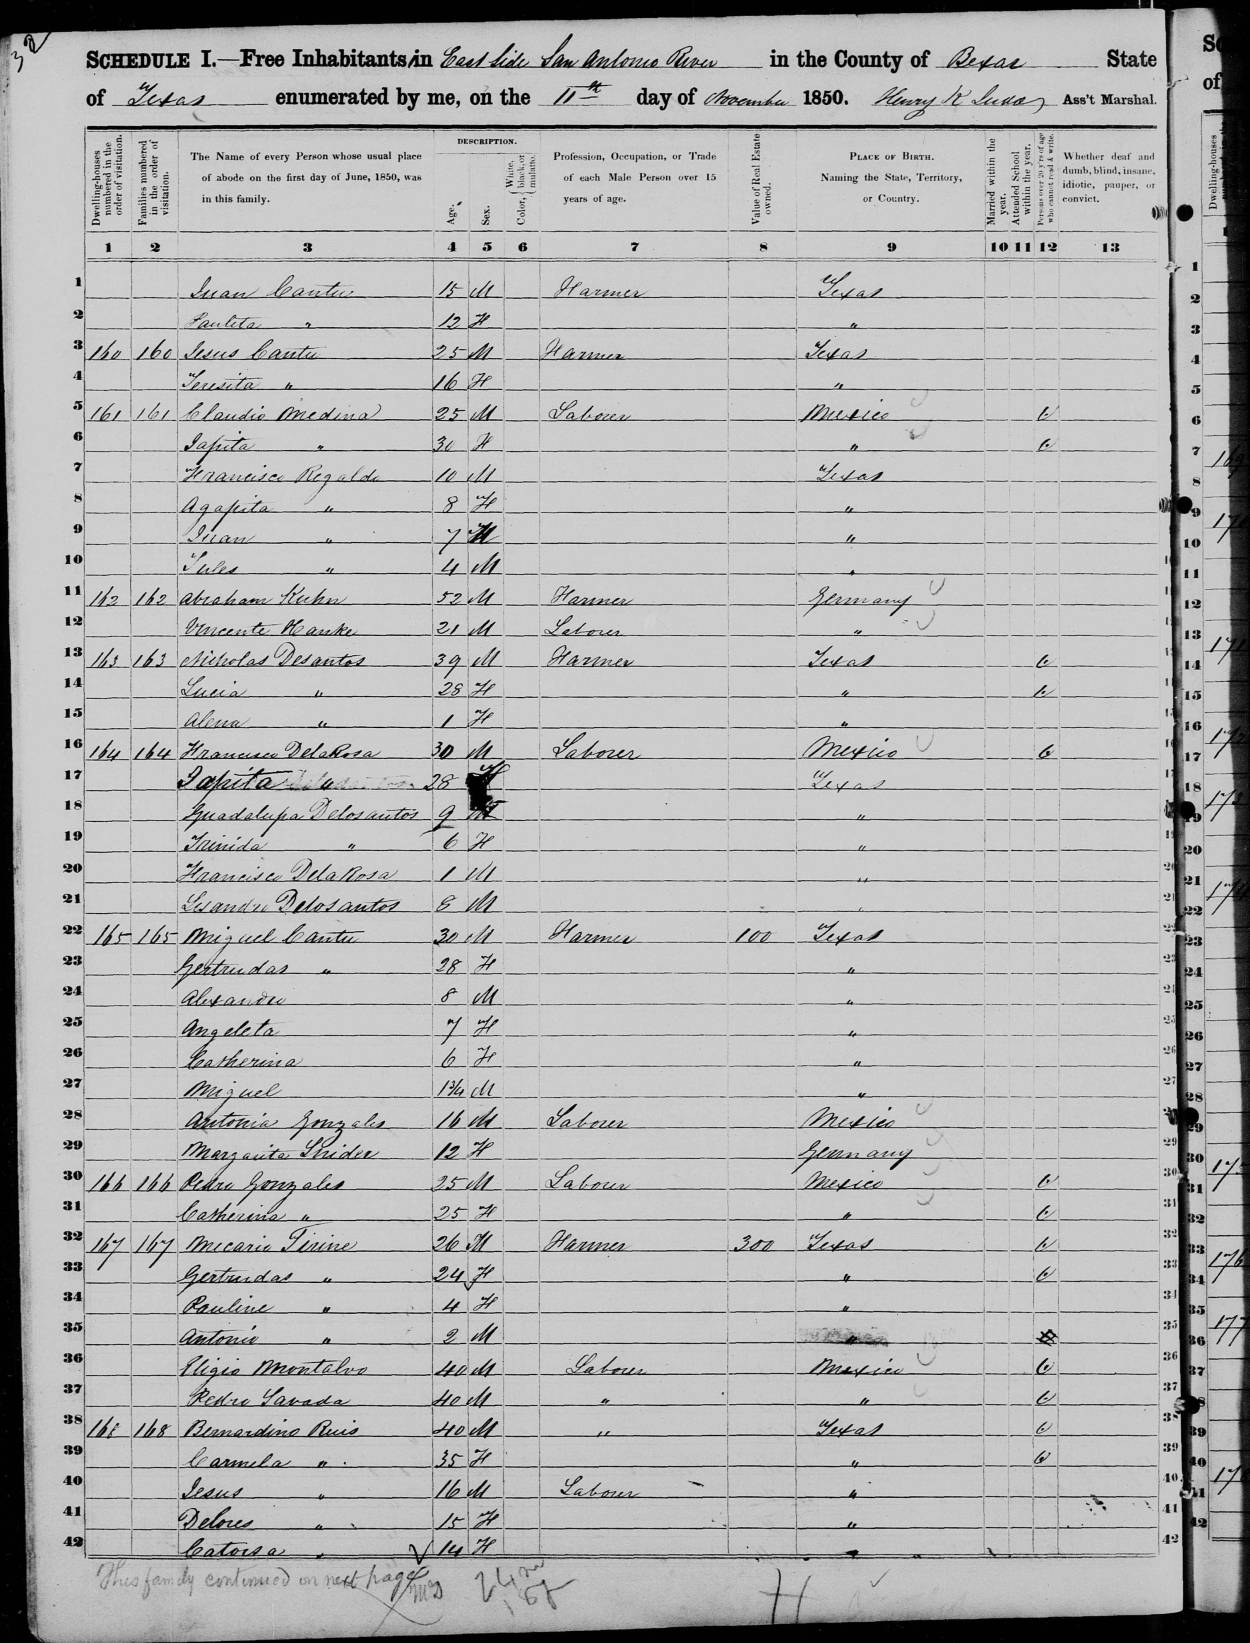 32
SCHEDULE I.—Free Inhabitants in East Side San Antonio River in the County of Bexar State
of Texas enumerated by me, on the 11th day of November 1850. Henry K Ass't Marshal.
Dwelling-houses numbered in the order of visitation.
Families numbered in the order of visitation.
The Name of every Person whose usual place of abode on the first day of June, 1850, was in this family.
DESCRIPTION.
Age.
Sex.
Color, { White, black, or mulatto.
Profession, Occupation, or Trade of each Male Person over 15 years of age.
Value of Real Estate owned.
PLACE OF BIRTH. Naming the State, Territory, or Country.
Married within the year.
Attended School within the year.
Persons over 20 y'rs of age who cannot read & write.
Whether deaf and dumb, blind, insane, idiotic, pauper, or convict.
1 2 3 4 5 6 7 8 9 10 11 12 13
1 Juan Cantu 15 M Farmer Texas
2 Pauleta " 12 F "
3 160 160 Jesus Cantu 25 M Farmer Texas
4 Teresita " 16 F "
5 161 161 Claudio Medina 25 M Laborer Mexico
6 Japita " 30 F "
7 Francisco Regaldo 10 M Texas
8 Agapita " 8 F "
9 Juan " 7 M "
10 Jules " 4 M "
11 162 162 Abraham Kuhn 52 M Farmer Germany
12 Vincente Hanke 21 M Laborer "
13 163 163 Nicholas Desantos 39 M Farmer Texas
14 Lucia " 28 F "
15 Alena " 1 F "
16 164 164 Francisco DelaRosa 30 M Laborer Mexico
17 Japita " 28 F Texas
18 Guadalupa Delosantos 9 "
19 Trinida " 6 F "
20 Francisco DelaRosa 1 M "
21 Lisandro Delosantos 8 M "
22 165 165 Miguel Cantu 30 M Farmer 100 Texas
23 Gertrudas " 28 F "
24 Alexandro 8 M "
25 Angeleta 7 F "
26 Catherina 6 F "
27 Miguel 1 3/4 M "
28 Antonia Gonzales 16 M Laborer Mexico
29 Margarita Snider 12 F Germany
30 166 166 Pedro Gonzales 25 M Laborer Mexico
31 Catherina " 25 F "
32 167 167 Mecario Tirine 26 M Farmer 300 Texas
33 Gertrudas " 24 F "
34 Pauline " 4 F "
35 Antonio " 2 M "
36 Eligio Montalvo 40 M Laborer Mexico
37 Pedro Savada 40 M " "
38 168 168 Bernardino Ruis 40 M " Texas
39 Carmela " 35 F "
40 Jesus " 16 M Laborer "
41 Delores " 15 F "
42 Catorsa " 14 F "
This family continued on next page